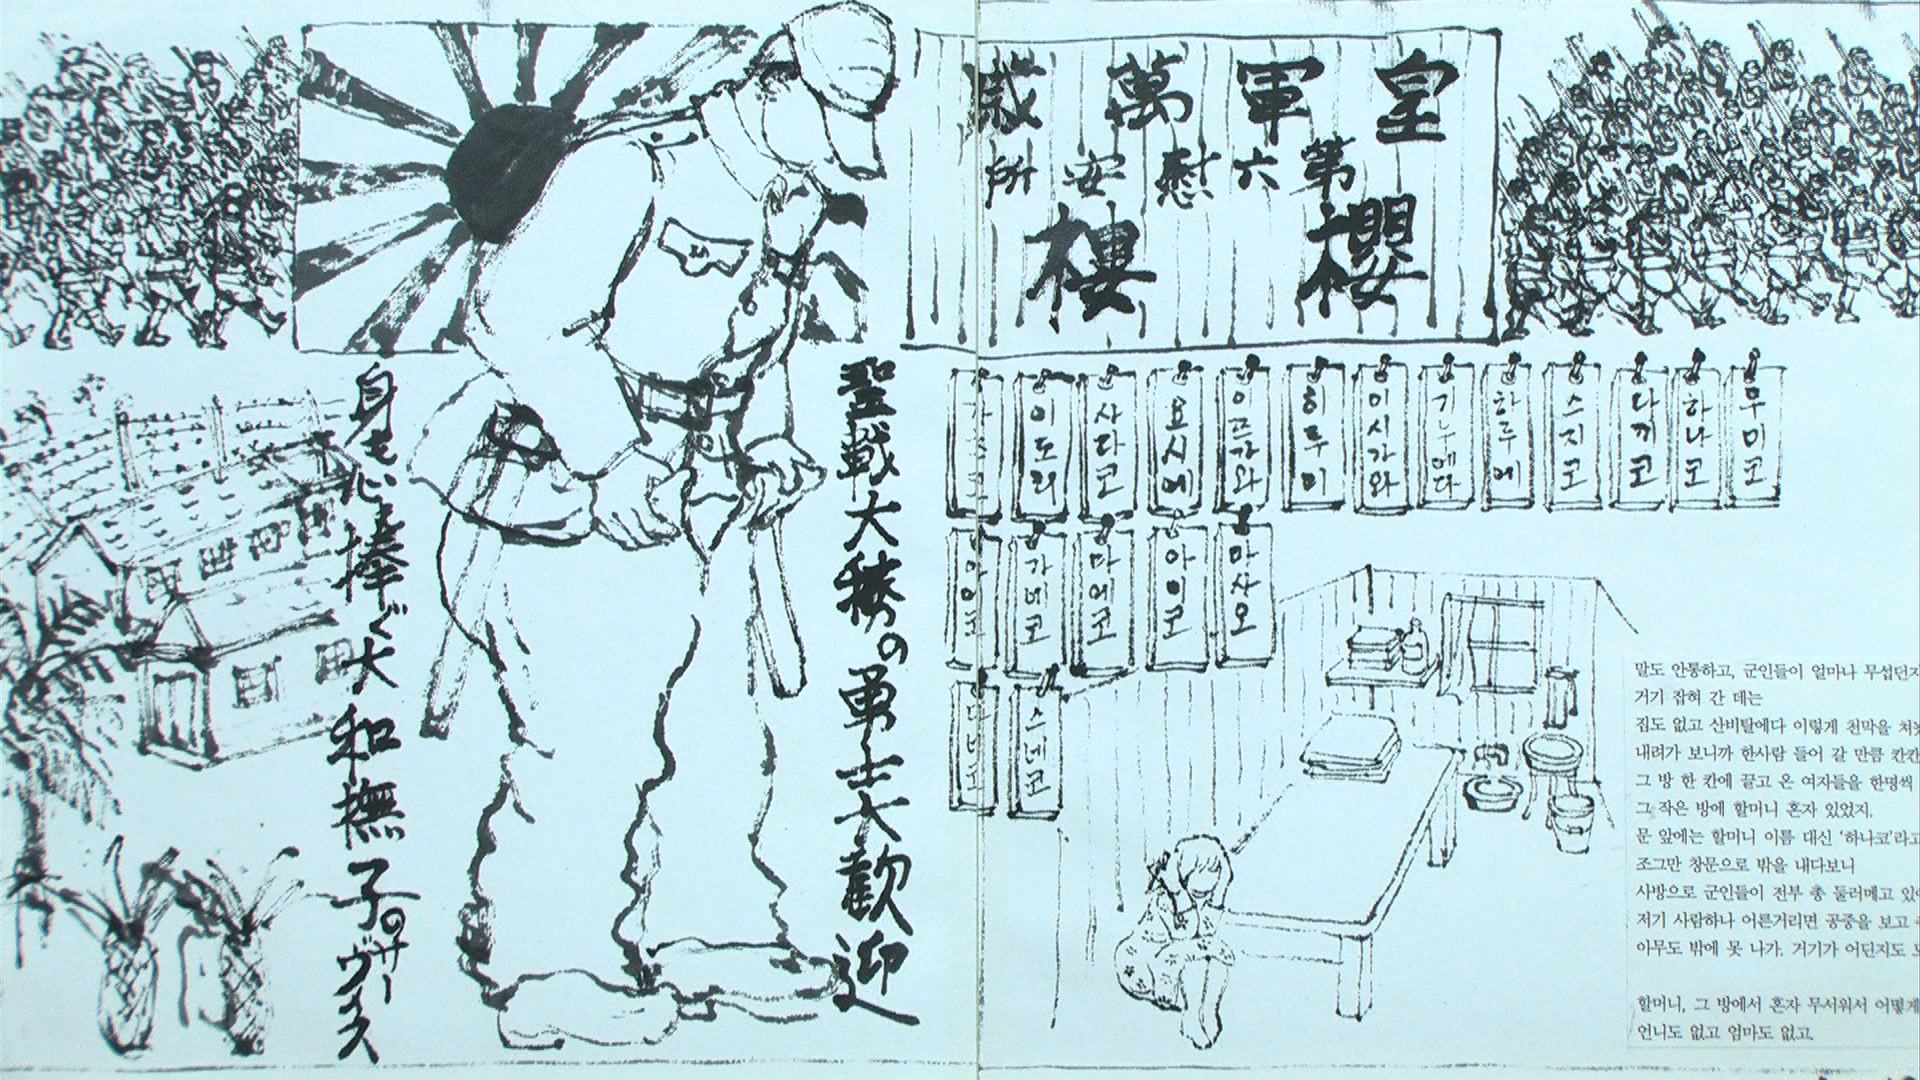 皇軍萬歲
第六慰安所
櫻樓
聖戰大勝の勇士大歡迎
身も心も捧ぐ大和撫子のサーヴィス
무미코
하나코
다까코
스지코
하루에
기누에다
미시가와
히루미
이르가와
요시에
사다코
이도리
가즈코
마사오
아이코
마에코
가네코
스네코
말도 안통하고, 군인들이 얼마나 무섭던지
거기 잡혀 간 데는
집도 없고 산비탈에다 이렇게 천막을 쳐놓
내려가 보니까 한사람 들어 갈 만큼 칸칸
그 방 한 칸에 끌고 온 여자들을 한명씩
그 작은 방에 할머니 혼자 있었지.
문 앞에는 할머니 이름 대신 '하나코'라고
조그만 창문으로 밖을 내다보니
사방으로 군인들이 전부 총 둘러메고 있
저기 사람하나 어른거리면 공중을 보고
아무도 밖에 못 나가. 거기가 어딘지도
할머니, 그 방에서 혼자 무서워서 어떻게
언니도 없고 엄마도 없고.